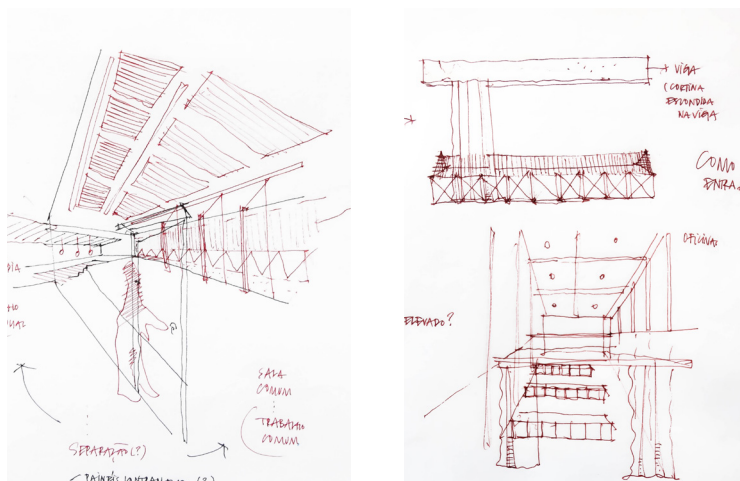 SALA
COMUM
TRABALHO
COMUM
SEPARAÇÃO (?)
PAINÉIS (?)
VIGA
(CORTINA
ESCONDIDA
NA VIGA
COMO
ENTRA
OFICINAS
ELEVADO?